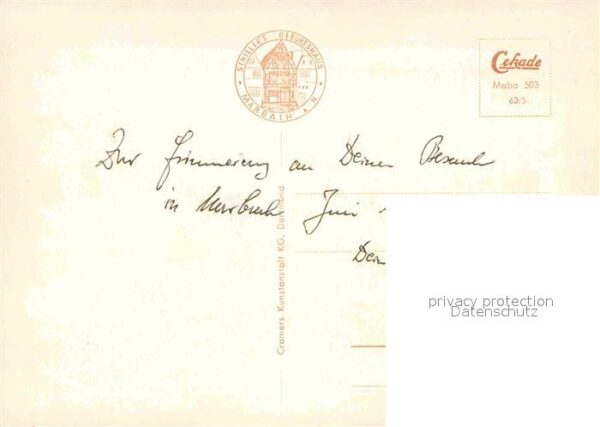 * SCHILLERS GEBURTSHAUS *
MARBACH A. N.
Cekade
Maba 503
63/5
Zur Erinnerung an Deinen Besuch
in Marbach Juni
Dein
Cramers Kunstanstalt KG, Dortmund
privacy protection
Datenschutz